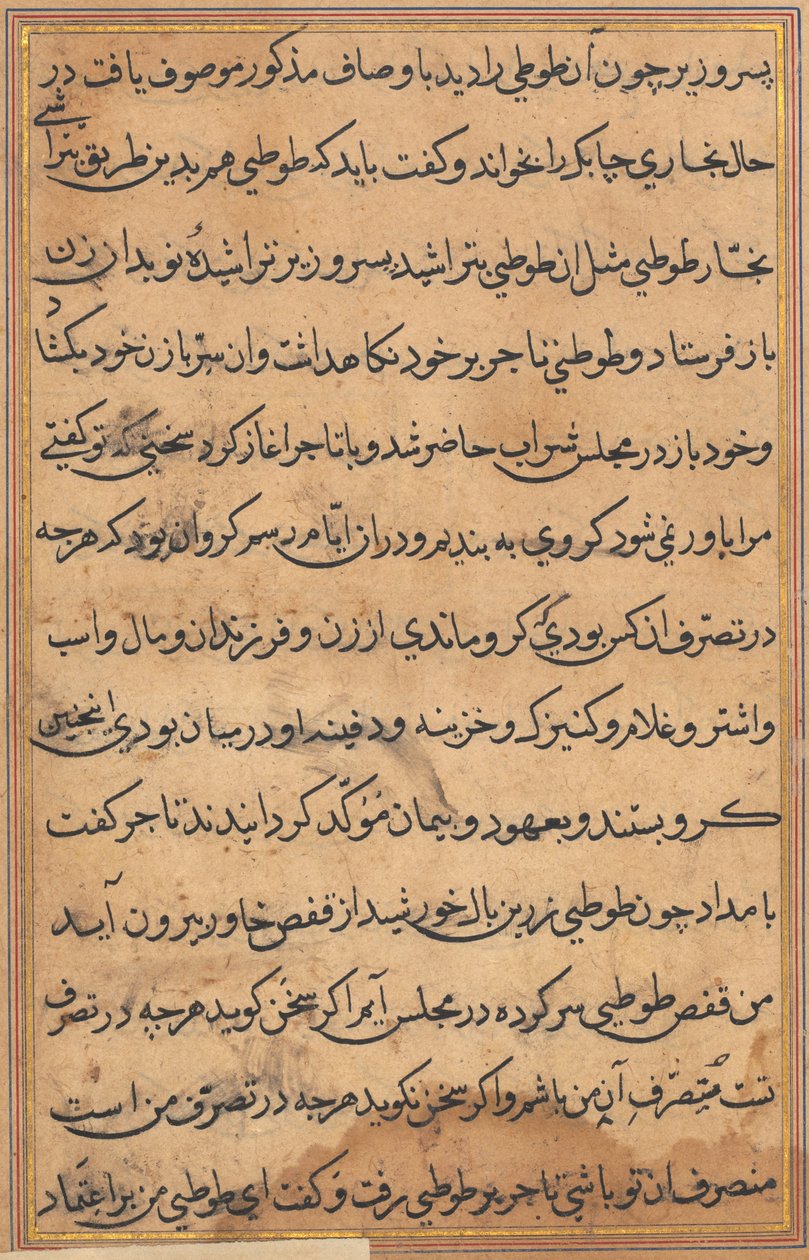 پسر وزیر چون آن طوطي را دید با وصاف مذکور موصوف یافت در
حال نجاري چابک را بخواند و کفت باید که طوطیي هم بدین طریق بتراشي
نجّار طوطیي مثل ان طوطیي بتراشید پسر وزیر تراشیدهٔ نو بدان زن
باز فرستاد و طوطیي تاجر بر خود نکاهداشت وان سِرّ بازن خود بکشاد
و خود باز در مجلس شراب حاضر شد و با تاجر اغاز کرد سخني که تو کفتي
مرا باور نمي شود کروي به بندیم و دران ایّام رسم کروان بود که هرجه
در تصرّف ان کس بودي که کرو ماندي از زن و فرزندان و مال و اسب
و اشتر و غلام و کنیزک و خزینه و دفینه او درمیان بودي اینجنین
کرو بستند و بعهود و پیمان مُؤکّد کردانیدند تاجر کفت
بامداد چون طوطیي زرین بال خورشید از قفص خاور بیرون آید
من قفص طوطیي سر کرده در مجلس آیم اکر سخَن کوید هرجه در تصرف
تست مُتِصرّفِ آنِ من باشم و اکر سخن نکوید هرجه در تصرّف من است
متصرف ان تو باشي تاجر بر طوطیي رفت وَ کفت اي طوطیي من بر اعتَماد